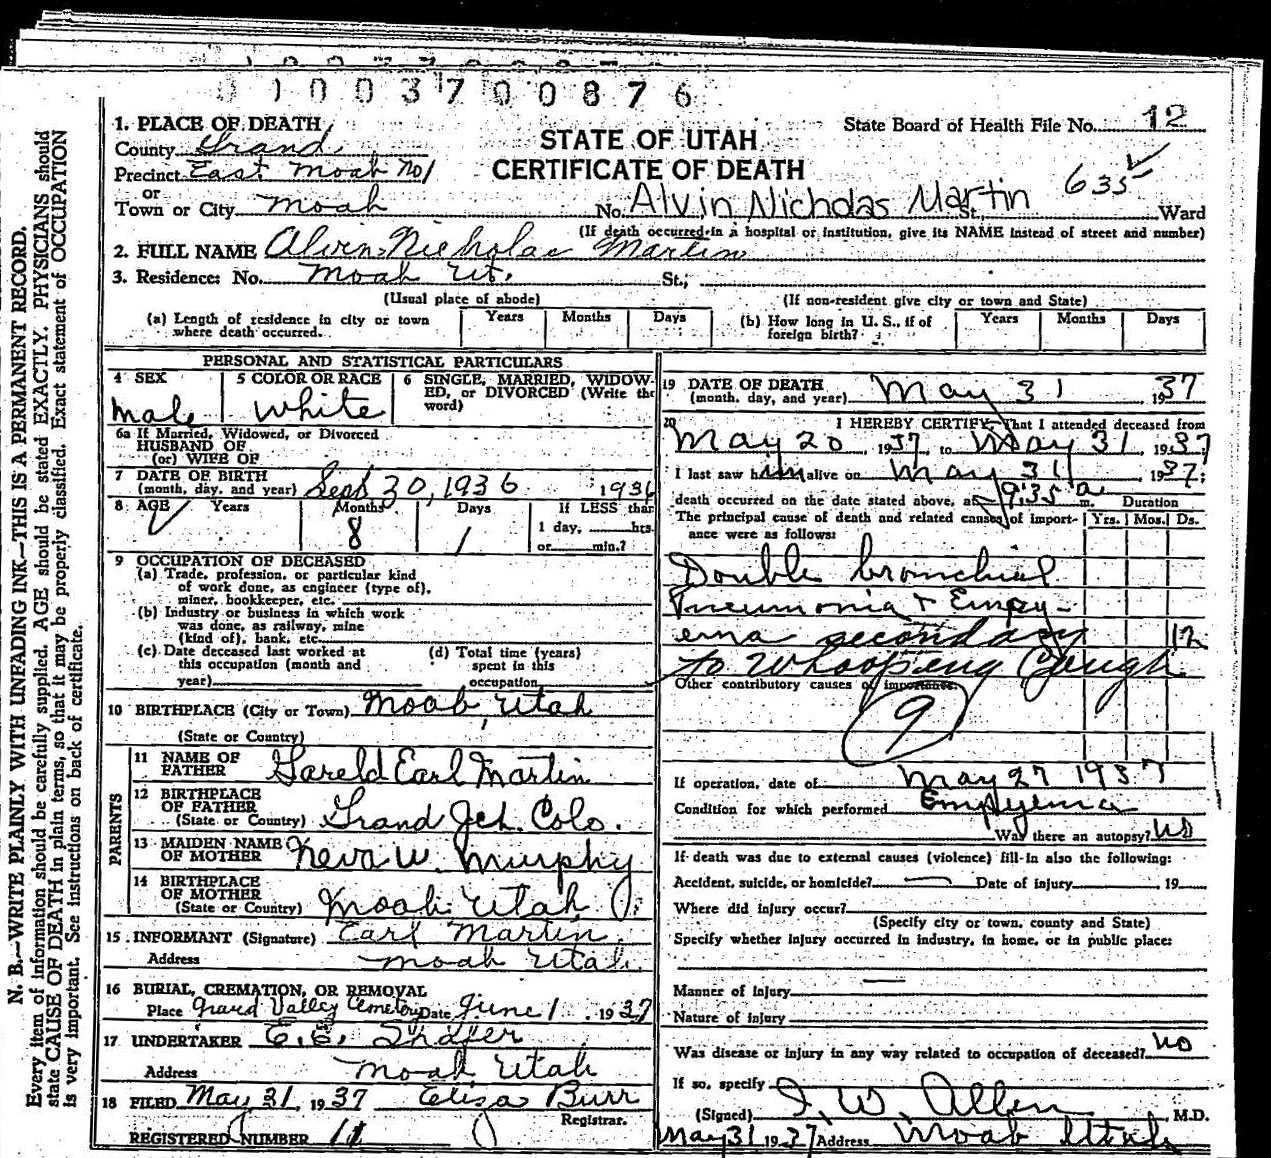 01003700876
1. PLACE OF DEATH
State Board of Health File No. 12
STATE OF UTAH
CERTIFICATE OF DEATH
County Grand
Precinct East Moab No 1
635
or
Town or City Moab No. Alvin Nicholas Martin St., Ward
(If death occurred in a hospital or institution, give its NAME instead of street and number)
2. FULL NAME Alvin Nicholas Martin
3. Residence: No. Moab Ut. St.;
(Usual place of abode) (If non-resident give city or town and State)
(a) Length of residence in city or town where death occurred. Years Months Days
(b) How long in U. S., if of foreign birth? Years Months Days
PERSONAL AND STATISTICAL PARTICULARS
4 SEX Male
5 COLOR OR RACE White
6 SINGLE, MARRIED, WIDOWED, or DIVORCED (Write the word)
6a If Married, Widowed, or Divorced
HUSBAND OF
(or) WIFE OF
7 DATE OF BIRTH
(month, day, and year) Sept 30, 1936 1936
8 AGE Years Months 8 Days 1
If LESS than
1 day, hrs.
or min.?
9 OCCUPATION OF DECEASED
(a) Trade, profession, or particular kind
of work done, as engineer (type of),
miner, bookkeeper, etc.
(b) Industry or business in which work
was done, as railway, mine
(kind of), bank, etc.
(c) Date deceased last worked at
this occupation (month and
year)
(d) Total time (years)
spent in this
occupation
10 BIRTHPLACE (City or Town) Moab, Utah
(State or Country)
PARENTS
11 NAME OF
FATHER Gareld Earl Martin
12 BIRTHPLACE
OF FATHER
(State or Country) Grand Jct. Colo.
13 MAIDEN NAME
OF MOTHER Neva W. Murphy
14 BIRTHPLACE
OF MOTHER
(State or Country) Moab Utah
15 INFORMANT (Signature) Earl Martin
Address Moab Utah
16 BURIAL, CREMATION, OR REMOVAL
Place Grand Valley Cemetery Date June 1 1937
17 UNDERTAKER E. E. Shafer
Address Moab Utah
18 FILED May 31, 1937 Eliza Burr
Registrar.
REGISTERED NUMBER 11
19 DATE OF DEATH
(month, day, and year) May 31 1937
20 I HEREBY CERTIFY, That I attended deceased from
May 20 1937, to May 31, 1937
I last saw him alive on May 31 1937;
death occurred on the date stated above, at 9:35 a m. Duration
The principal cause of death and related causes of importance were as follows: Yrs. Mos. Ds.
Double bronchial
Pneumonia + Empy-
ema secondary 12
to Whooping Cough
Other contributory causes of importance:
9
If operation, date of May 27 1937
Condition for which performed Empyema
Was there an autopsy? No
If death was due to external causes (violence) fill-in also the following:
Accident, suicide, or homicide? Date of injury 19
Where did injury occur?
(Specify city or town, county and State)
Specify whether injury occurred in industry, in home, or in public place:
Manner of injury
Nature of injury
Was disease or injury in any way related to occupation of deceased? No
If so, specify
(Signed) I. W. Allen M.D.
May 31 1937 Address Moab Utah
N. B.—WRITE PLAINLY WITH UNFADING INK—THIS IS A PERMANENT RECORD.
Every item of information should be carefully supplied. AGE should be stated EXACTLY. PHYSICIANS should
state CAUSE OF DEATH in plain terms, so that it may be properly classified. Exact statement of OCCUPATION
is very important. See instructions on back of certificate.